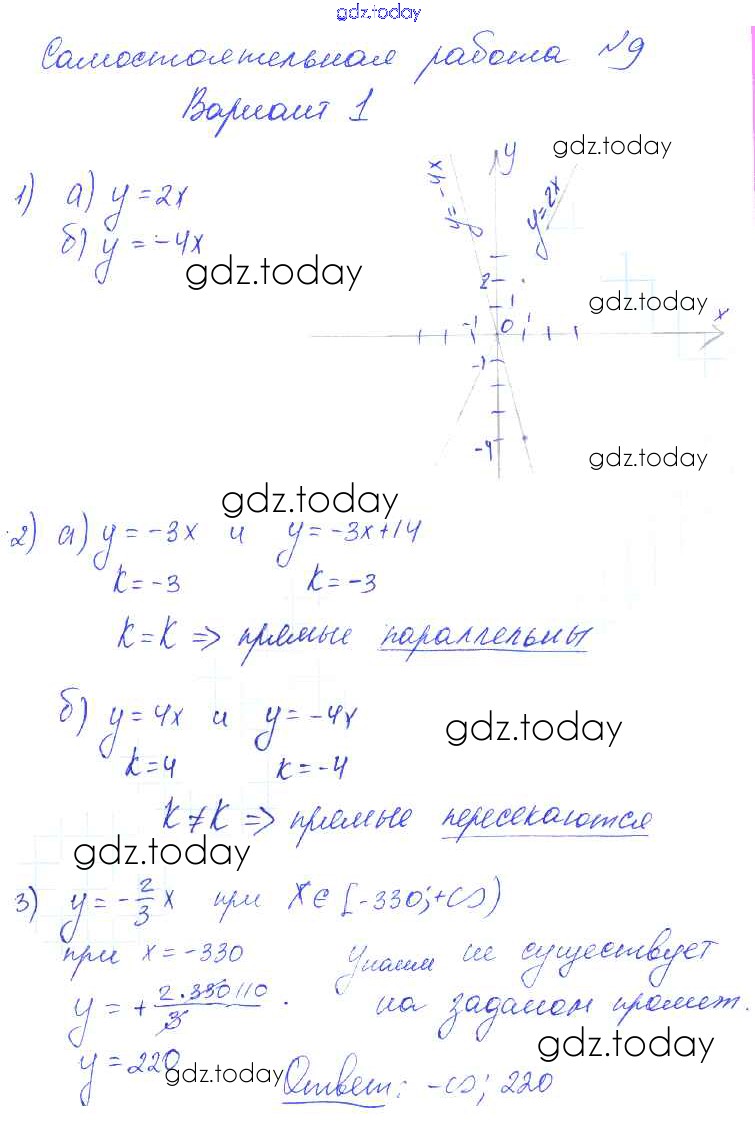 gdz.today
Самостоятельная работа №9
Вариант 1
gdz.today
1) а) y = 2x
б) y = -4x
y = -4x
y
y = 2x
gdz.today
2
1
gdz.today
-1 0 1 x
-1
-4
gdz.today
gdz.today
2) а) y = -3x и y = -3x+14
k = -3 k = -3
k = k => прямые параллельны
б) y = 4x и y = -4x
gdz.today
k = 4 k = -4
k ≠ k => прямые пересекаются
gdz.today
3) y = -2/3 x при x ∈ [-330; +∞)
при x = -330 не существует
y = + 2·330 110 / 3 . на заданом промеж.
gdz.today
y = 220
gdz.today
Ответ: -∞; 220